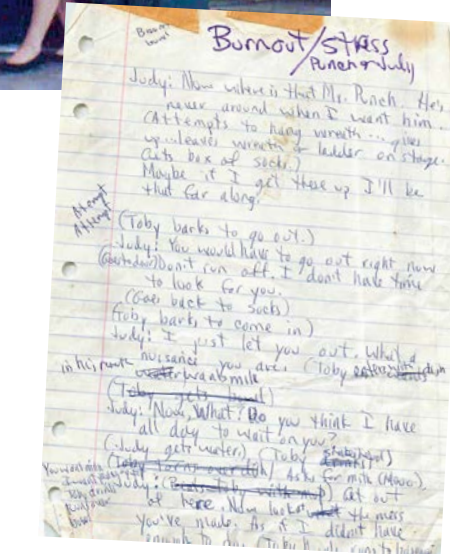 Burnout/Stress
Punch & Judy
Judy: Now where is that Mr. Punch. He's
never around when I want him.
(Attempts to hang wreath... gives
up...leaves wreath & ladder on stage.
Gets box of socks.)
Maybe if I get these up I'll be
that far along.
Attempt
Attempt
(Toby barks to go out.)
Judy: You would have to go out right now
(Goes to door) Don't run off. I don't have time
to look for you.
(Goes back to socks)
(Toby barks to come in)
Judy: I just let you out. What a
nuisance you are. (Toby with dish
in his mouth
(Toby gets bowl)
Judy: Now, What? Do you think I have
all day to wait on you?
(Judy gets water) (Toby
(Toby turns over dish) Asks for milk (Meow).
You want milk
Judy: (Beats Toby with mop) Get out
of here. Now look at the mess
you've made. As if I didn't have
enough to